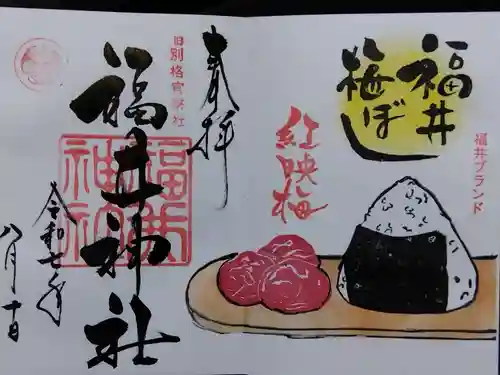 福井
梅ぼし
福井ブランド
紅映梅
奉拝
旧別格官幣社
福井神社
福井神社
令和七年
八月十日